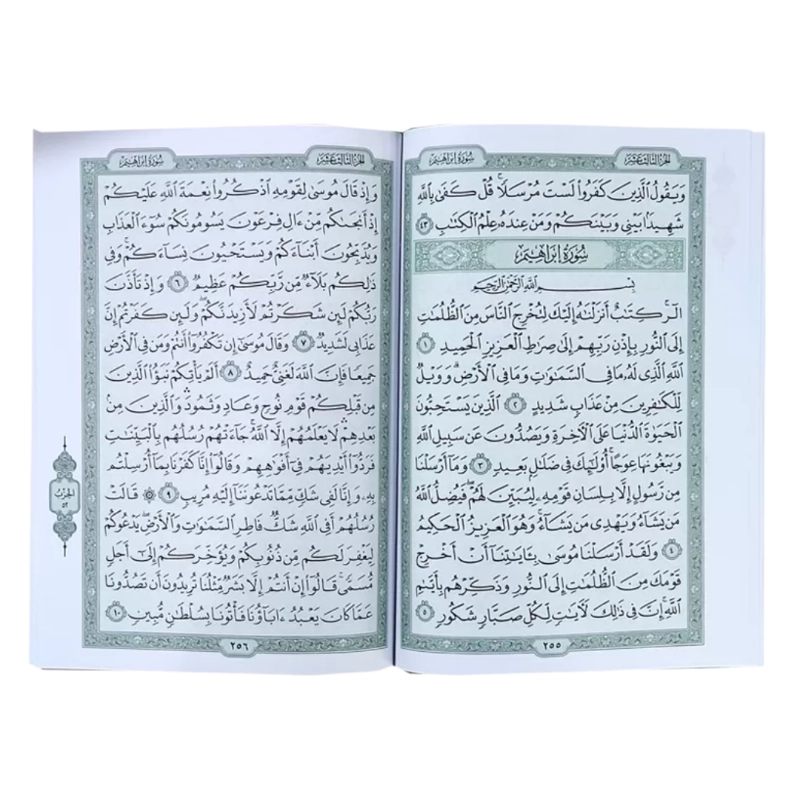 الجزء الثالث عشر
سورة إبراهيم
وَيَقُولُ ٱلَّذِينَ كَفَرُواْ لَسۡتَ مُرۡسَلٗاۚ قُلۡ كَفَىٰ بِٱللَّهِ
شَهِيدَۢا بَيۡنِي وَبَيۡنَكُمۡ وَمَنۡ عِندَهُۥ عِلۡمُ ٱلۡكِتَٰبِ ٤٣
سُورَةُ إِبۡرَاهِيمَ
بِسۡمِ ٱللَّهِ ٱلرَّحۡمَٰنِ ٱلرَّحِيمِ
الٓرۚ كِتَٰبٌ أَنزَلۡنَٰهُ إِلَيۡكَ لِتُخۡرِجَ ٱلنَّاسَ مِنَ ٱلظُّلُمَٰتِ
إِلَى ٱلنُّورِ بِإِذۡنِ رَبِّهِمۡ إِلَىٰ صِرَٰطِ ٱلۡعَزِيزِ ٱلۡحَمِيدِ ١
ٱللَّهِ ٱلَّذِي لَهُۥ مَا فِي ٱلسَّمَٰوَٰتِ وَمَا فِي ٱلۡأَرۡضِۗ وَوَيۡلٞ
لِّلۡكَٰفِرِينَ مِنۡ عَذَابٖ شَدِيدٍ ٢ ٱلَّذِينَ يَسۡتَحِبُّونَ
ٱلۡحَيَوٰةَ ٱلدُّنۡيَا عَلَى ٱلۡأٓخِرَةِ وَيَصُدُّونَ عَن سَبِيلِ ٱللَّهِ
وَيَبۡغُونَهَا عِوَجًاۚ أُوْلَٰٓئِكَ فِي ضَلَٰلِۭ بَعِيدٖ ٣ وَمَآ أَرۡسَلۡنَا
مِن رَّسُولٍ إِلَّا بِلِسَانِ قَوۡمِهِۦ لِيُبَيِّنَ لَهُمۡۖ فَيُضِلُّ ٱللَّهُ
مَن يَشَآءُ وَيَهۡدِي مَن يَشَآءُۚ وَهُوَ ٱلۡعَزِيزُ ٱلۡحَكِيمُ
٤ وَلَقَدۡ أَرۡسَلۡنَا مُوسَىٰ بِـَٔايَٰتِنَآ أَنۡ أَخۡرِجۡ
قَوۡمَكَ مِنَ ٱلظُّلُمَٰتِ إِلَى ٱلنُّورِ وَذَكِّرۡهُم بِأَيَّىٰمِ
ٱللَّهِۚ إِنَّ فِي ذَٰلِكَ لَأٓيَٰتٖ لِّكُلِّ صَبَّارٖ شَكُورٖ ٥
٢٥٥
الجزء الثالث عشر
سورة إبراهيم
وَإِذۡ قَالَ مُوسَىٰ لِقَوۡمِهِ ٱذۡكُرُواْ نِعۡمَةَ ٱللَّهِ عَلَيۡكُمۡ
إِذۡ أَنجَىٰكُم مِّنۡ ءَالِ فِرۡعَوۡنَ يَسُومُونَكُمۡ سُوٓءَ ٱلۡعَذَابِ
وَيُذَبِّحُونَ أَبۡنَآءَكُمۡ وَيَسۡتَحۡيُونَ نِسَآءَكُمۡۚ وَفِي
ذَٰلِكُم بَلَآءٞ مِّن رَّبِّكُمۡ عَظِيمٞ ٦ وَإِذۡ تَأَذَّنَ
رَبُّكُمۡ لَئِن شَكَرۡتُمۡ لَأَزِيدَنَّكُمۡۖ وَلَئِن كَفَرۡتُمۡ إِنَّ
عَذَابِي لَشَدِيدٞ ٧ وَقَالَ مُوسَىٰٓ إِن تَكۡفُرُوٓاْ أَنتُمۡ وَمَن فِي ٱلۡأَرۡضِ
جَمِيعٗا فَإِنَّ ٱللَّهَ لَغَنِيٌّ حَمِيدٌ ٨ أَلَمۡ يَأۡتِكُمۡ نَبَؤُاْ ٱلَّذِينَ
مِن قَبۡلِكُمۡ قَوۡمِ نُوحٖ وَعَادٖ وَثَمُودَ وَٱلَّذِينَ مِنۢ
بَعۡدِهِمۡ لَا يَعۡلَمُهُمۡ إِلَّا ٱللَّهُۚ جَآءَتۡهُمۡ رُسُلُهُم بِٱلۡبَيِّنَٰتِ
فَرَدُّوٓاْ أَيۡدِيَهُمۡ فِيٓ أَفۡوَٰهِهِمۡ وَقَالُوٓاْ إِنَّا كَفَرۡنَا بِمَآ أُرۡسِلۡتُم
بِهِۦ وَإِنَّا لَفِي شَكّٖ مِّمَّا تَدۡعُونَنَآ إِلَيۡهِ مُرِيبٖ ٩ ۞ قَالَتۡ
رُسُلُهُمۡ أَفِي ٱللَّهِ شَكّٞ فَاطِرِ ٱلسَّمَٰوَٰتِ وَٱلۡأَرۡضِۖ يَدۡعُوكُمۡ
لِيَغۡفِرَ لَكُم مِّن ذُنُوبِكُمۡ وَيُؤَخِّرَكُمۡ إِلَىٰٓ أَجَلٖ
مُّسَمّٗىۚ قَالُوٓاْ إِنۡ أَنتُمۡ إِلَّا بَشَرٞ مِّثۡلُنَا تُرِيدُونَ أَن تَصُدُّونَا
عَمَّا كَانَ يَعۡبُدُ ءَابَآؤُنَا فَأۡتُونَا بِسُلۡطَٰنٖ مُّبِينٖ ١٠
الحزب
٥٢
٢٥٦